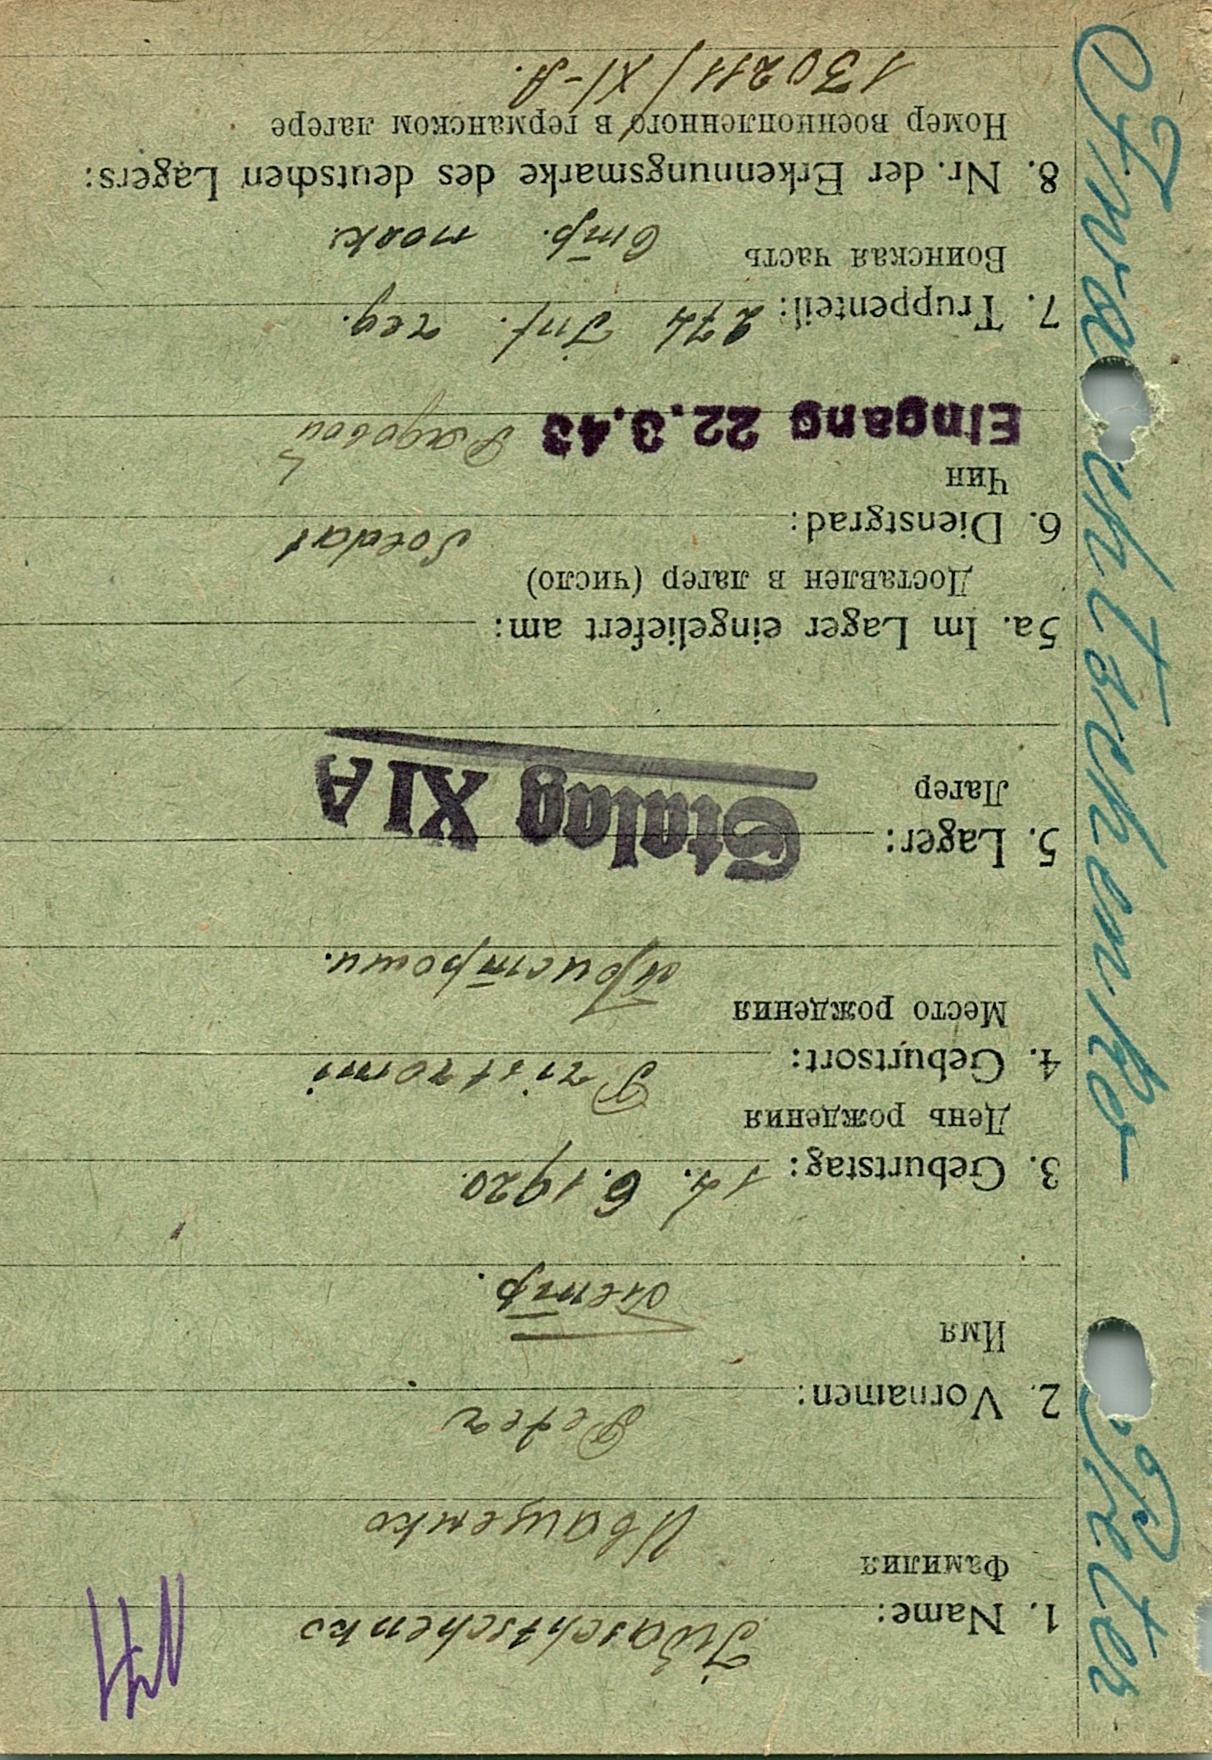 Iwaschtschenko Peter
1. Name: Iwaschtschenko
Фамилия
Иващенко
2. Vornamen: Peter
Имя
Петр.
3. Geburtstag: 14. 6. 1920.
День рождения
4. Geburtsort: Pristromi
Место рождения
Пристроми.
5. Lager: Stalag XI A
Лагер
5a. Im Lager eingeliefert am:
Доставлен в лагер (число)
6. Dienstgrad: Soldat
Чин
Рядовой
Eingang 22.3.43
7. Truppenteil: 274 Inf. reg.
Воинская часть
Стр. полк.
8. Nr. der Erkennungsmarke des deutschen Lagers:
Номер военнопленного в германском лагере
130211/XI-A.